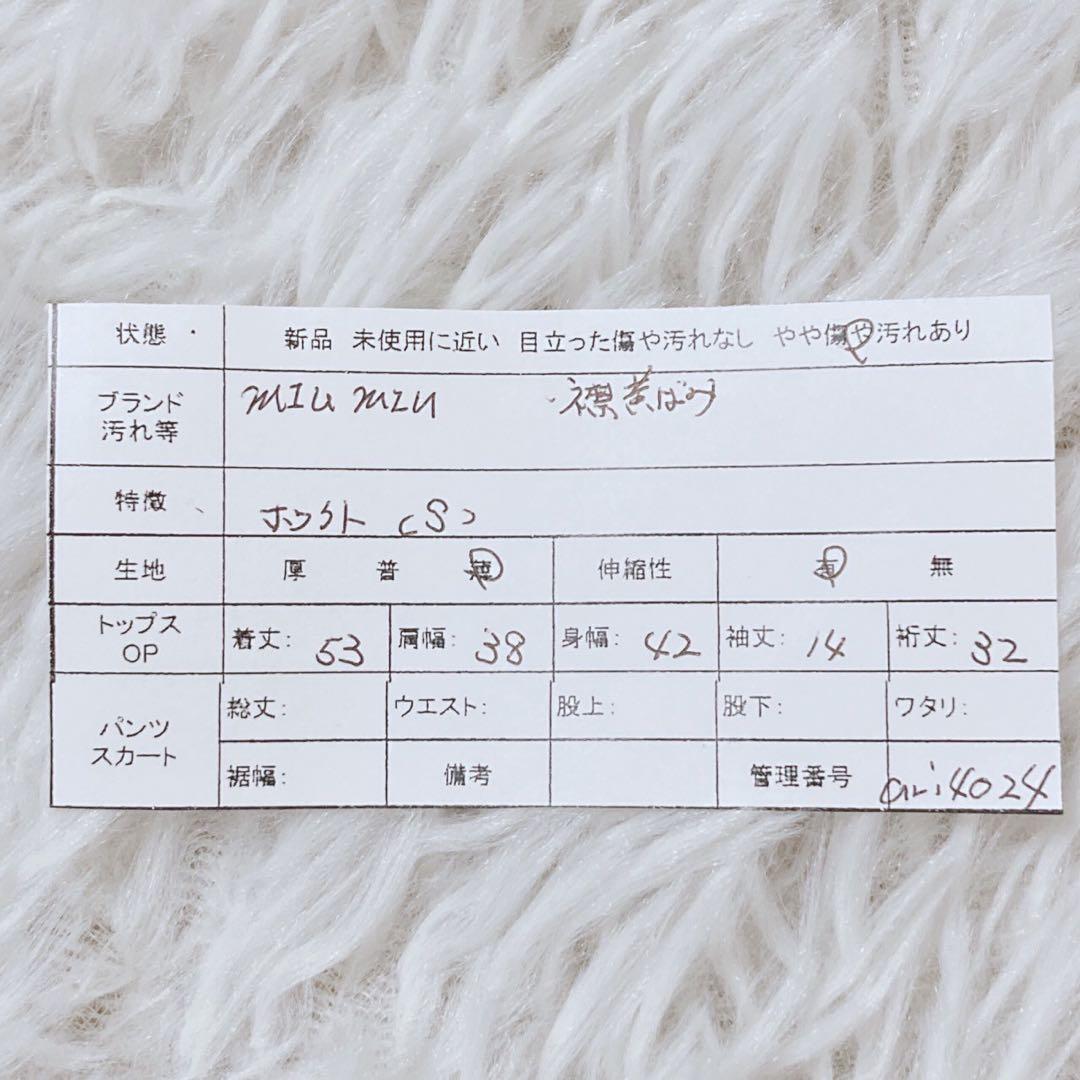 状態 ・ 新品 未使用に近い 目立った傷や汚れなし やや傷や汚れあり
ブランド
汚れ等
MIU MIU ・襟黄ばみ
特徴 、
ホワイト (S)
生地 厚 普 薄 伸縮性 有 無
トップス
OP
着丈: 53 肩幅: 38 身幅: 42 袖丈: 14 裄丈: 32
パンツ
スカート
総丈: ウエスト: 股上: 股下: ワタリ:
裾幅: 備考 管理番号 ari4024